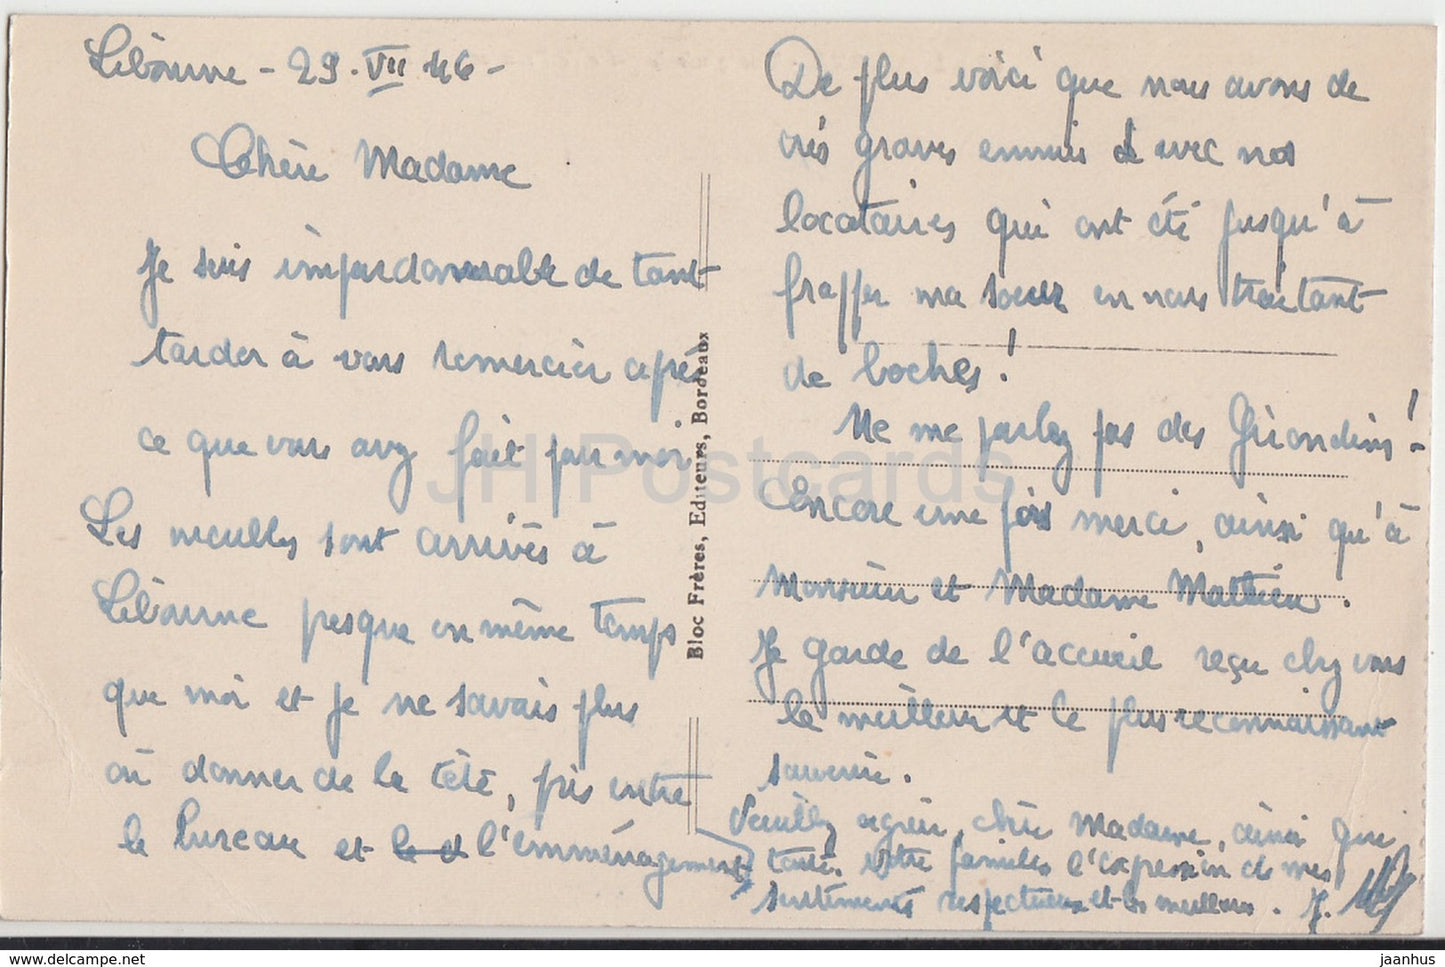 Libourne - 29. VII 46 -
Chère Madame
Je suis impardonnable de tant
tarder à vous remercier après
ce que vous avez fait pour moi
Les meubles sont arrivés à
Libourne presque en même temps
que moi et je ne savais plus
où donner de la tête, pris entre
le bureau et l'emménagement
De plus voici que nous avons de
très graves ennuis avec nos
locataires qui ont été jusqu'à
frapper ma soeur en nous traitant
de boches !
Ne me parlez pas des Girondins !
Encore une fois merci, ainsi qu'à
Monsieur et Madame Mathieu.
Je garde de l'accueil reçu chez vous
le meilleur et le plus reconnaissant
souvenir.
Veuillez agréer, chère Madame, ainsi que
toute votre famille l'expression de mes
sentiments respectueux et les meilleurs. J.
Bloc Frères, Editeurs, Bordeaux
JH Postcards
jaanhus